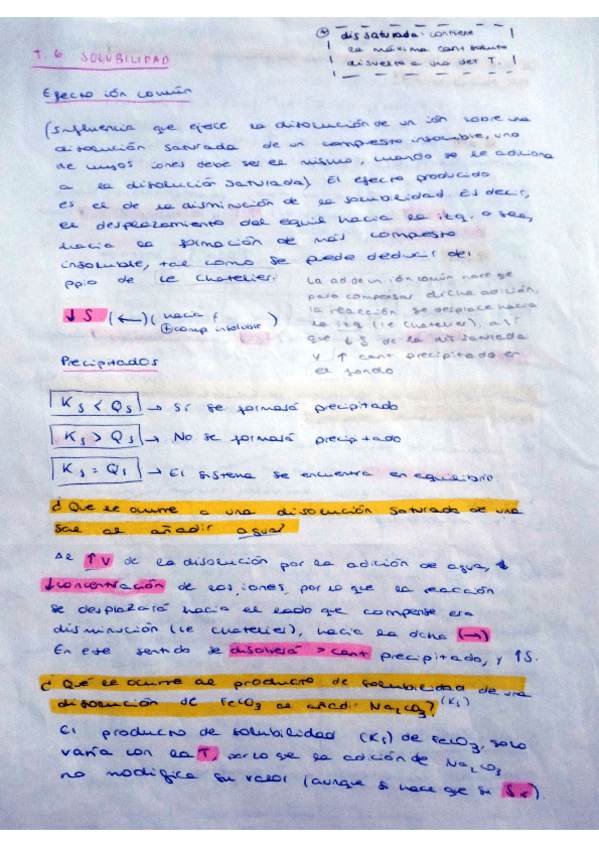 * dis saturada: contiene
la máxima cant soluto
disuelto a una det T.
T. 6 SOLUBILIDAD
Efecto ión común
(Influencia que ejerce la disolución de un ión sobre una
disolución saturada de un compuesto insoluble, uno
de cuyos iones debe ser el mismo, cuando se le adiciona
a la disolución saturada). El efecto producido
es el de la disminución de la solubilidad. Es decir,
el desplazamiento del equil hacia la izq. o sea,
hacia la formación de más compuesto
insoluble, tal como se puede deducir del
ppio de Le Chatelier.
La ad de un ión común hace q
para compensar dicha adición,
la reacción se desplace hacia
la izq (le chatelier), así
que ↓ S de la dis saturada
y ↑ cant precipitado en
el fondo
↓ S (←) (hacia f
⊕ comp insoluble)
Precipitados
Ks < Qs → Sí se formará precipitado
Ks > Qs → No se formará precipitado
Ks = Qs → El sistema se encuentra en equilibrio.
¿Que le ocurre a una disolución saturada de una
sal al añadir agua?
Al ↑ V de la disolución por la adición de agua,
↓ concentración de los iones, por lo que la reacción
se desplazará hacia el lado que compense esa
disminución (le chatelier), hacia la dcha (→)
En este sentido se disolverá > cant precipitado, y ↑ S.
¿Qué le ocurre al producto de solubilidad de una
disolución de FeCO3 al añadir Na2CO3? (Ks)
El producto de solubilidad (Ks) de FeCO3, solo
varía con la T, por lo que la adición de Na2CO3
no modifica su valor (aunque si hace que su S <).